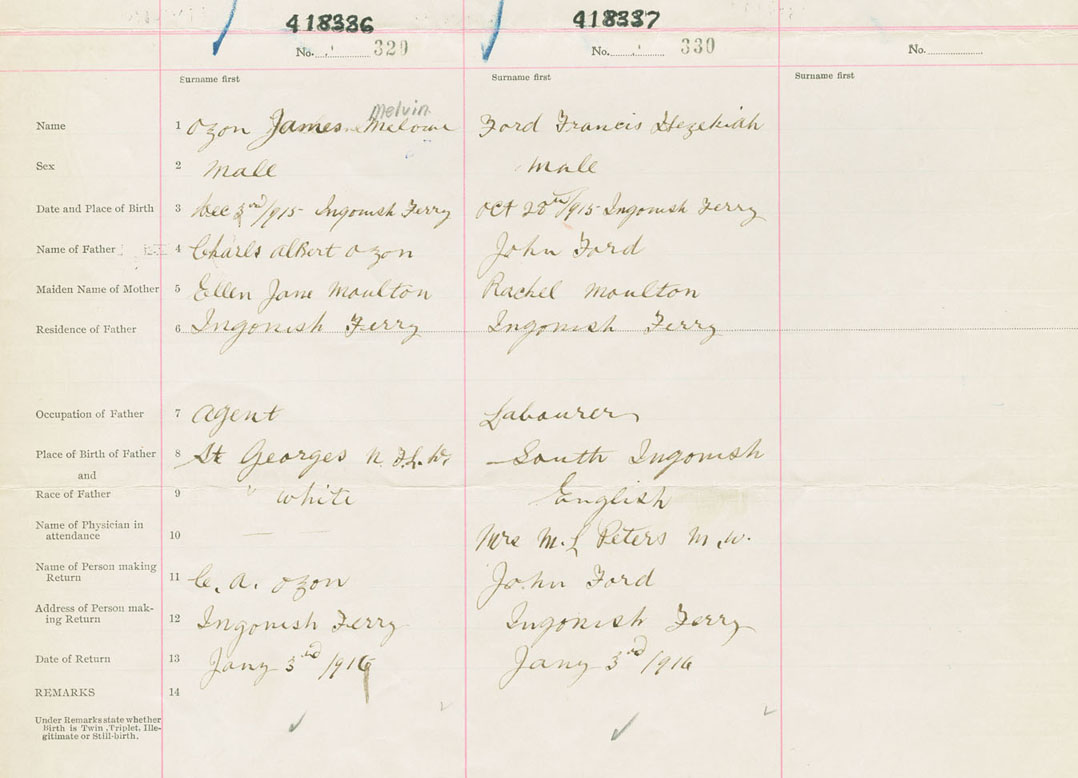 418336 418337
No. 329 No. 330 No.
Surname first Surname first Surname first
Melvin
Name 1 Ozon James Ford Francis Hezekiah
Sex 2 male male
Date and Place of Birth 3 Dec 3rd/1915 Ingonish Ferry Oct 28th/1915 Ingonish Ferry
Name of Father 4 Charls Albert Ozon John Ford
Maiden Name of Mother 5 Ellen Jane Moulton Rachel Moulton
Residence of Father 6 Ingonish Ferry Ingonish Ferry
Occupation of Father 7 agent Labourer
Place of Birth of Father 8 St Georges South Ingonish
and
Race of Father 9 " white English
Name of Physician in
attendance 10 Mrs M. L Peters M.W.
Name of Person making
Return 11 C. A. Ozon John Ford
Address of Person mak-
ing Return 12 Ingonish Ferry Ingonish Ferry
Date of Return 13 Jany 3rd/1916 Jany 3rd/1916
REMARKS 14
Under Remarks state whether
Birth is Twin, Triplet, Ille-
gitimate or Still-birth.